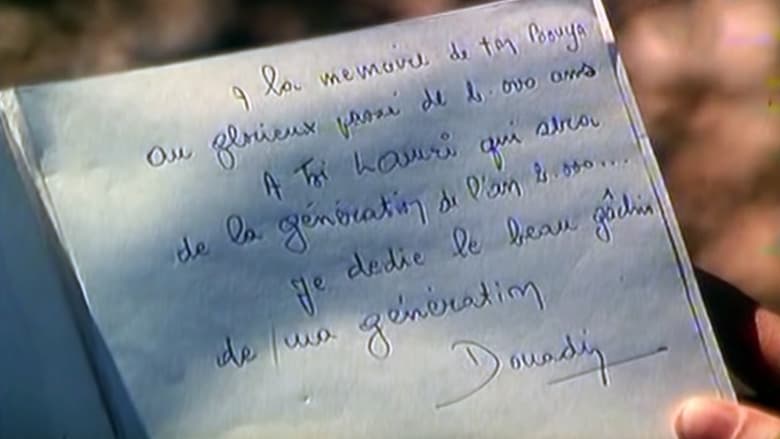 A la memoire de ton Bouya
au glorieux passé de 2.000 ans
A toi Lauri qui sera
de la génération de l'an 2.000...
je dedie le beau gâchis
de ma génération
Douadi